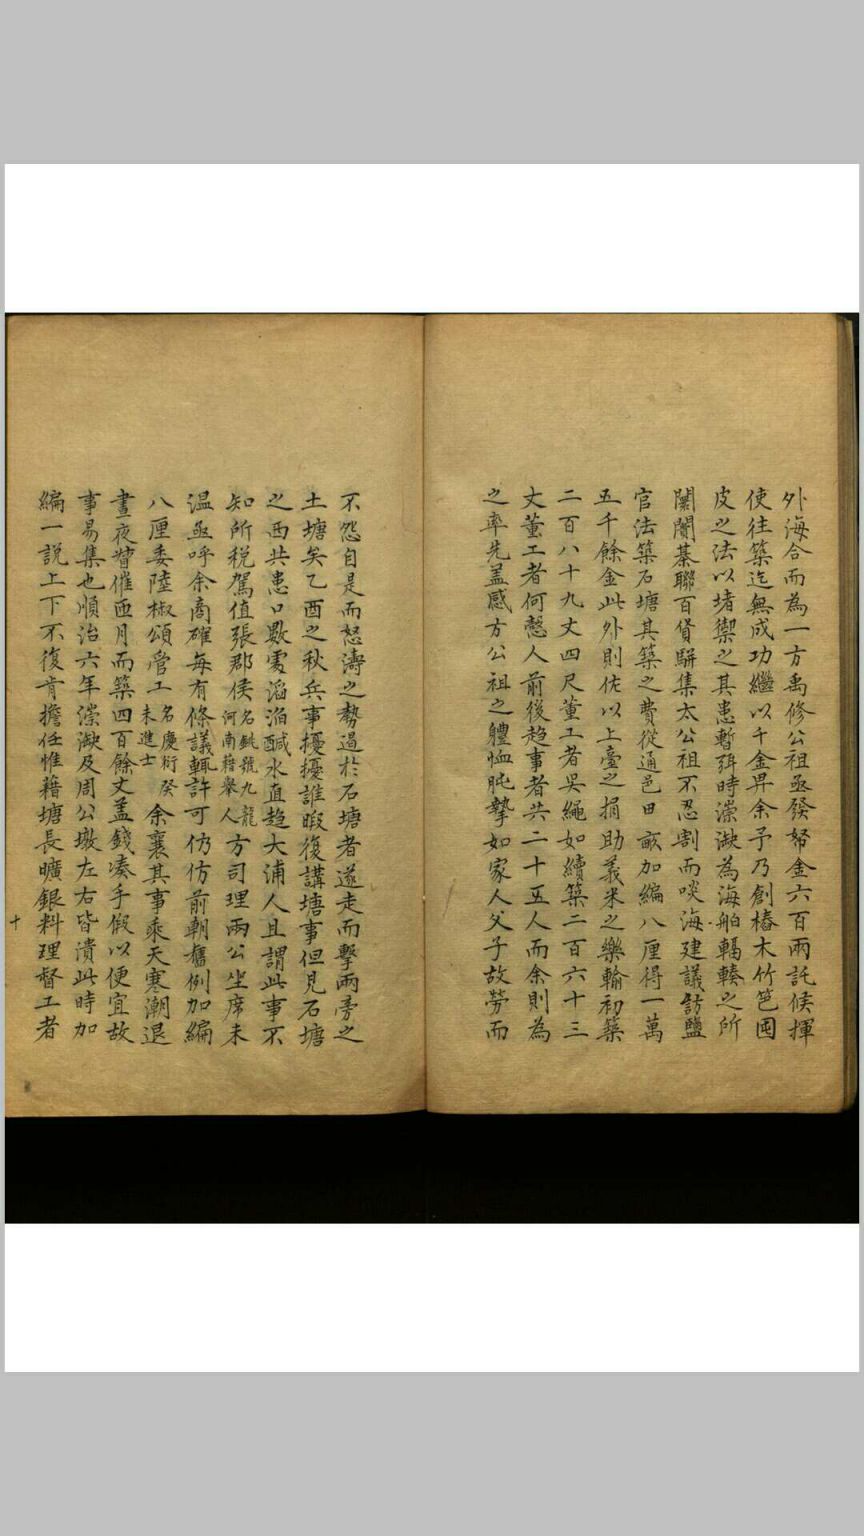 外海合而為一方禹修公祖亟發帑金六百兩託候揮
使往築迄無成功繼以千金畀余予乃創樁木竹笆囤
皮之法以堵禦之其患暫弭時漴湫為海舶輻輳之所
闤闠綦聯百貨駢集太公祖不忍割而啖海建議訪鹽
官法築石塘其築之費從通邑田畝加編八厘得一萬
五千餘金此外則佐以上臺之捐助義米之樂輸初築
二百八十九丈四尺董工者吳繩如續築二百六十三
丈董工者何愨人前後趨事者共二十五人而余則為
之率先盖感方公祖之軆恤肫摯如家人父子故勞而
不怨自是而怒濤之勢過於石塘者遂走而擊兩旁之
土塘矣乙酉之秋兵事擾擾誰暇復講塘事但見石塘
之西共患口數處滔滔鹹水直趋大浦人且謂此事不
知所稅駕值張郡侯名銚號九龍河南籍舉人方司理兩公坐席未
温亟呼余商確每有條議輒許可仍仿前朝舊例加編
八厘委陸椒頌管工名慶衍癸未進士余襄其事乘天寒潮退
晝夜督催匝月而築四百餘丈盖錢凑手假以便宜故
事易集也順治六年漴湫及周公墩左右皆潰此時加
編一說上下不復肯擔任惟藉塘長曠銀料理督工者
十